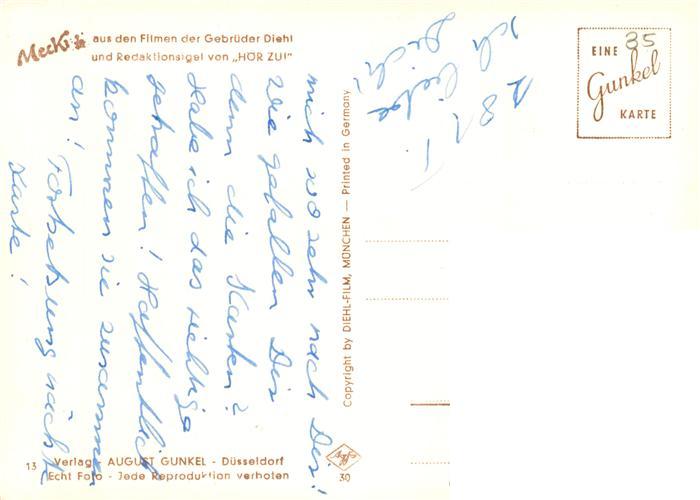 Mecki aus den Filmen der Gebrüder Diehl
und Redaktionsigel von „HÖR ZU!"
mich so sehr nach Dir!
Wie gefallen Dir
denn die Karten?
Habe ich das richtige
getroffen! Hoffentlich
kommen sie zusammen
an! Fortsetzung nächste
Karte!
Ich liebe
Dich!
281.
35
EINE
Gunkel
KARTE
Copyright by DIEHL-FILM, MÜNCHEN — Printed in Germany
13 Verlag AUGUST GUNKEL - Düsseldorf
Echt Foto - Jede Reproduktion verboten
Agfa
30